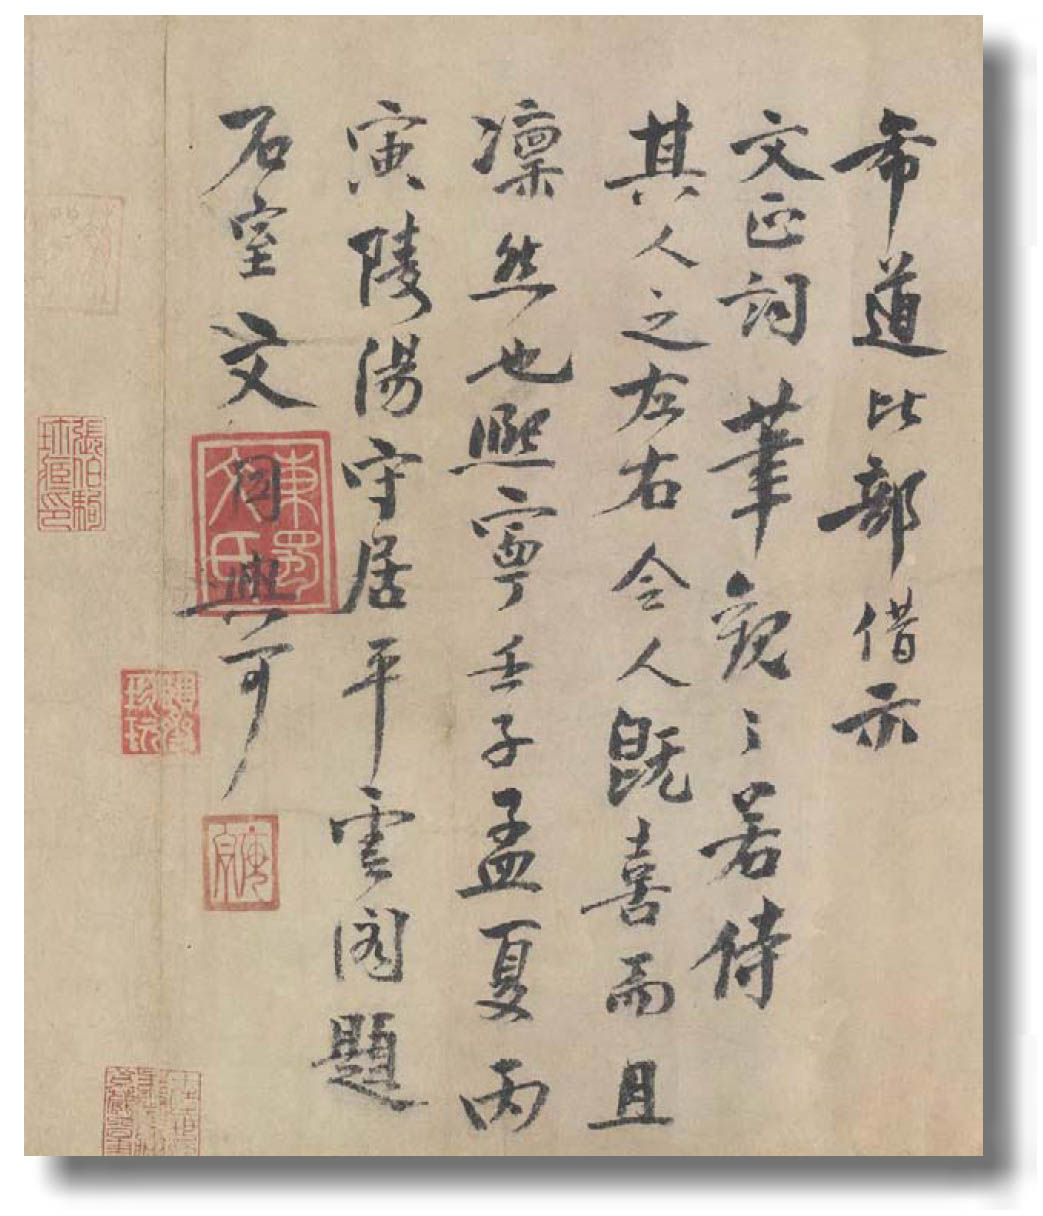 希道比部借示
文正詞筆觀之若侍
其人之左右令人既喜而且
凜然也熙寧壬子孟夏丙
寅陵陽守居平雲閣題
石室文同與可
東蜀文氏
張伯駒珍藏印